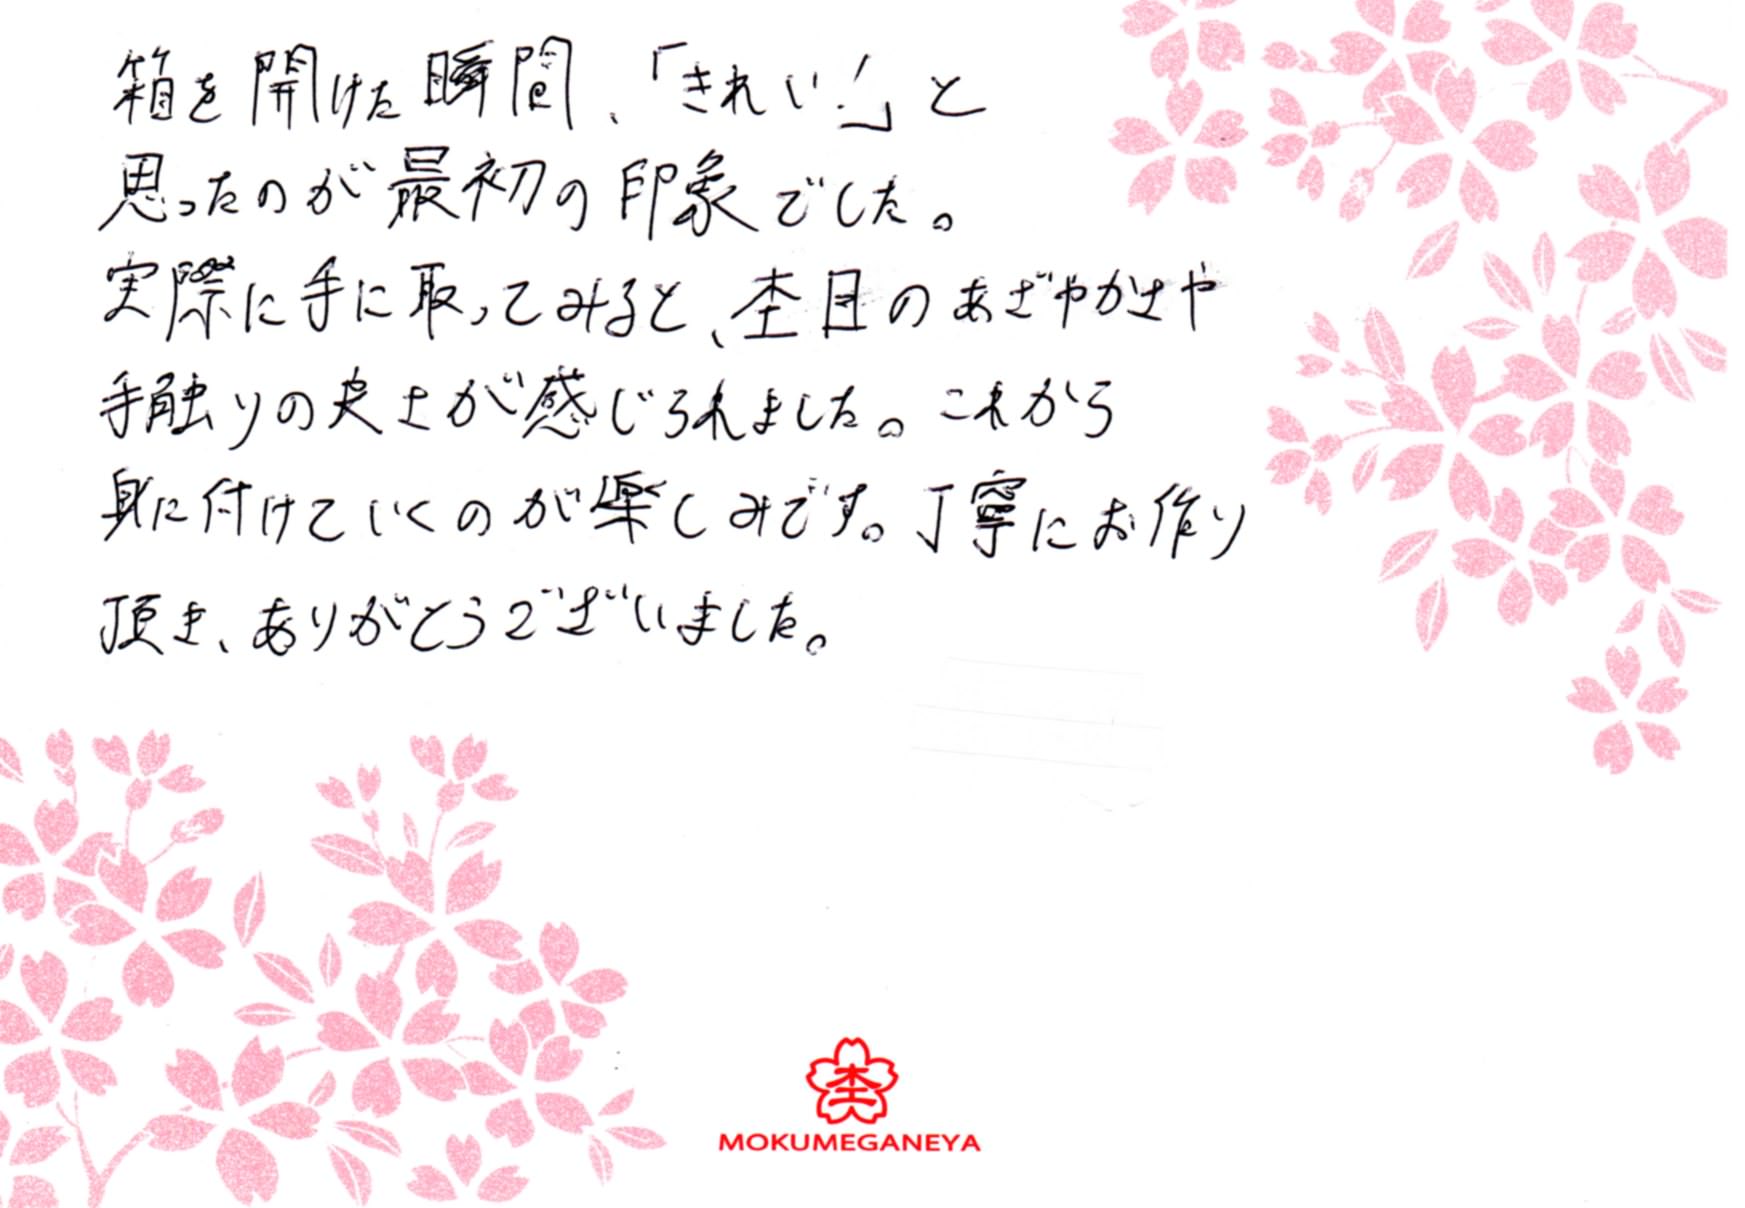 箱を開けた瞬間、「きれい!」と
思ったのが最初の印象でした。
実際に手に取ってみると、杢目のあざやかさや
手触りの良さが感じられました。これから
身に付けていくのが楽しみです。丁寧にお作り
頂き、ありがとうございました。
杢
MOKUMEGANEYA